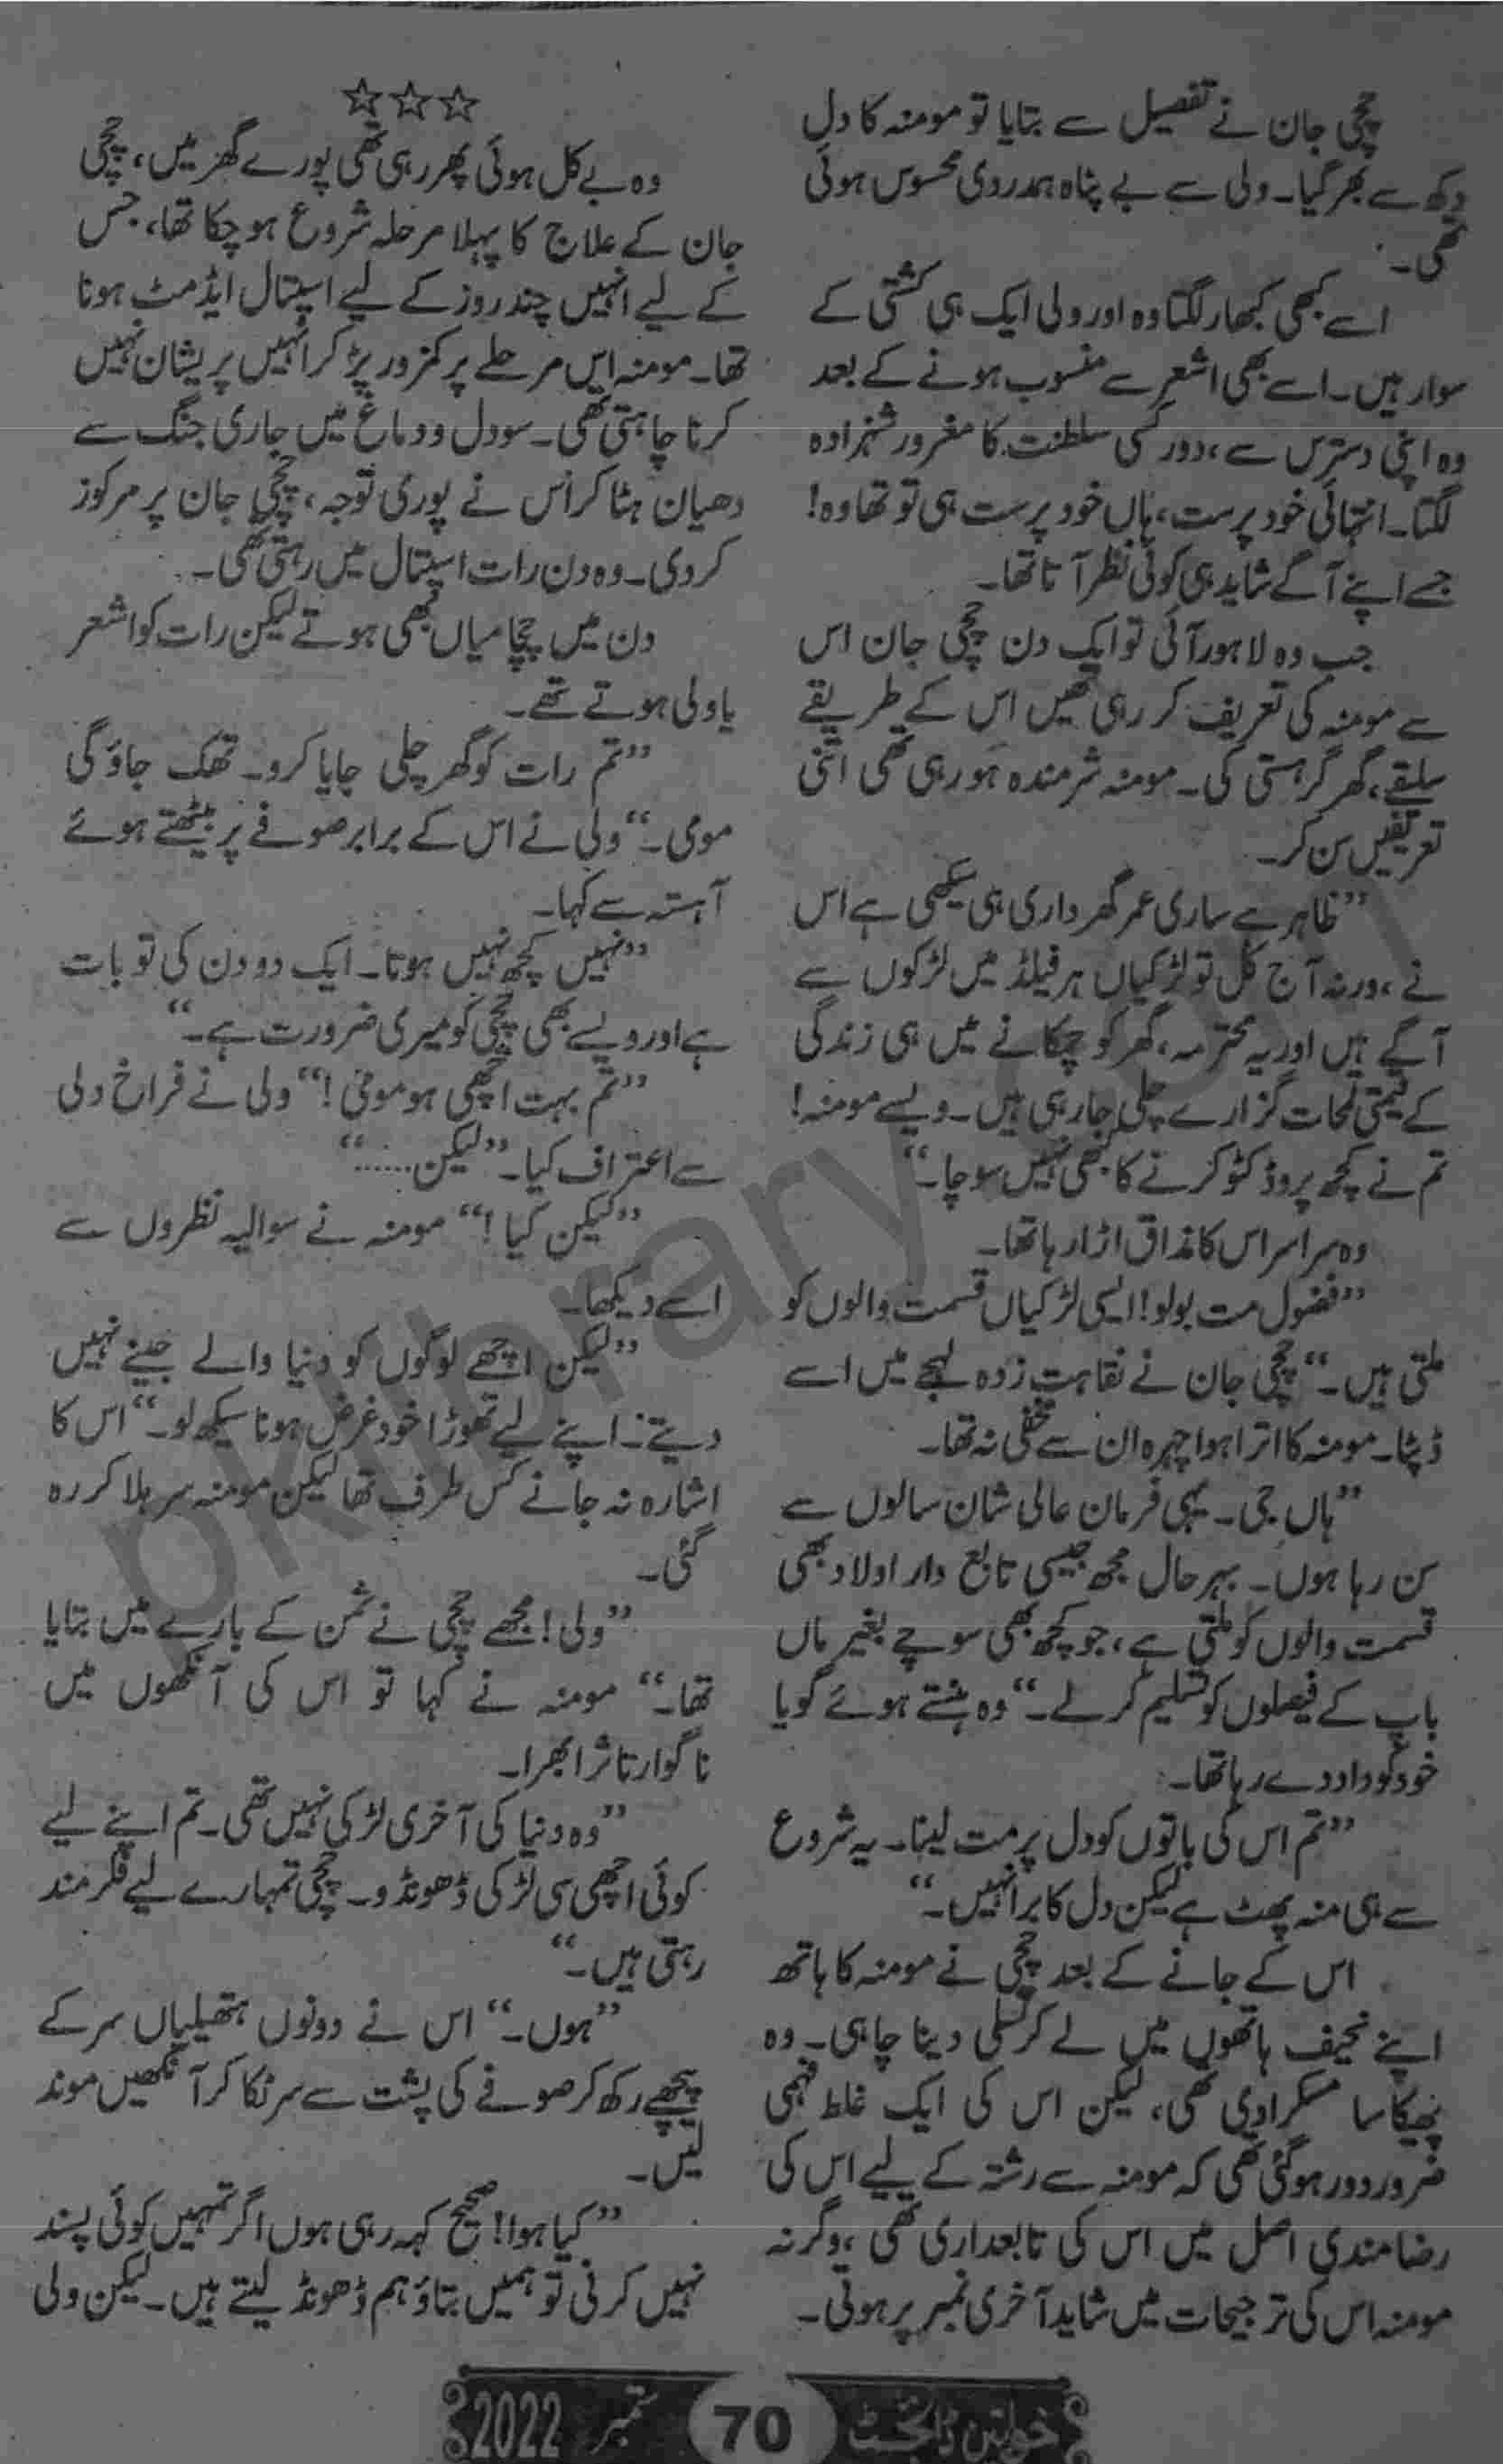 چچی جان نے تفصیل سے بتایا تو مومنہ کا دل
دکھ سے بھر گیا۔ ولی سے بے پناہ ہمدردی محسوس ہوئی
تھی۔
اسے کبھی کبھار لگتا وہ اور ولی ایک ہی کشتی کے
سوار ہیں۔ اسے بھی اشعر سے منسوب ہونے کے بعد
وہ اپنی دسترس سے، دور کسی سلطنت کا مغرور شہزادہ
لگتا۔ انتہائی خود پرست، ہاں خود پرست ہی تو تھا وہ!
جسے اپنے آگے شاید ہی کوئی نظر آتا تھا۔
جب وہ لاہور آئی تو ایک دن چچی جان اس
سے مومنہ کی تعریف کر رہی تھیں اس کے طریقے
سلیقے، گھر گرہستی کی۔ مومنہ شرمندہ ہو رہی تھی اتنی
تعریفیں سن کر۔
”ظاہر ہے ساری عمر گھر داری ہی سیکھی ہے اس
نے، ورنہ آج کل تو لڑکیاں ہر فیلڈ میں لڑکوں سے
آگے ہیں اور یہ محترمہ، گھر کو چمکانے میں ہی زندگی
کے قیمتی لمحات گزارے چلی جا رہی ہیں۔ ویسے مومنہ!
تم نے کچھ پروڈکٹو کرنے کا بھی نہیں سوچا۔“
وہ سراسر اس کا مذاق اڑا رہا تھا۔
”فضول مت بولو! ایسی لڑکیاں قسمت والوں کو
ملتی ہیں۔“ چچی جان نے نقاہت زدہ لہجے میں اسے
ڈپٹا۔ مومنہ کا اترا ہوا چہرہ ان سے مخفی نہ تھا۔
”ہاں جی۔ یہی فرمان عالی شان سالوں سے
سن رہا ہوں۔ بہرحال مجھ جیسی تابع دار اولاد بھی
قسمت والوں کو ملتی ہے، جو کچھ بھی سوچے بغیر ماں
باپ کے فیصلوں کو تسلیم کر لے۔“ وہ ہنستے ہوئے گویا
خود کو داد دے رہا تھا۔
”تم اس کی باتوں کو دل پر مت لینا۔ یہ شروع
سے ہی منہ پھٹ ہے لیکن دل کا برا نہیں۔“
اس کے جانے کے بعد چچی نے مومنہ کا ہاتھ
اپنے نحیف ہاتھوں میں لے کر تسلی دینا چاہی۔ وہ
پھیکا سا مسکرا دی تھی، لیکن اس کی ایک غلط فہمی
ضرور دور ہو گئی تھی کہ مومنہ سے رشتہ کے لیے اس کی
رضا مندی اصل میں اس کی تابعداری تھی، وگرنہ
مومنہ اس کی ترجیحات میں شاید آخری نمبر پر ہوتی۔
☆☆☆
وہ بے کل ہوئی پھر رہی تھی پورے گھر میں، چچی
جان کے علاج کا پہلا مرحلہ شروع ہو چکا تھا، جس
کے لیے انہیں چند روز کے لیے اسپتال ایڈمٹ ہونا
تھا۔ مومنہ اس مرحلے پر کمزور پڑ کر انہیں پریشان نہیں
کرنا چاہتی تھی۔ سو دل و دماغ میں جاری جنگ سے
دھیان ہٹا کر اس نے پوری توجہ، چچی جان پر مرکوز
کر دی۔ وہ دن رات اسپتال میں رہتی تھی۔
دن میں چچا میاں بھی ہوتے لیکن رات کو اشعر
یا ولی ہوتے تھے۔
”تم رات کو گھر چلی جایا کرو۔ تھک جاؤ گی
مومی۔“ ولی نے اس کے برابر صوفے پر بیٹھتے ہوئے
آہستہ سے کہا۔
”نہیں کچھ نہیں ہوتا۔ ایک دو دن کی تو بات
ہے اور ویسے بھی چچی کو میری ضرورت ہے۔“
”تم بہت اچھی ہو مومی!“ ولی نے فراخ دلی
سے اعتراف کیا۔ ”لیکن......“
”لیکن کیا!“ مومنہ نے سوالیہ نظروں سے
اسے دیکھا۔
”لیکن اچھے لوگوں کو دنیا والے جینے نہیں
دیتے۔ اپنے لیے تھوڑا خود غرض ہونا سیکھ لو۔“ اس کا
اشارہ نہ جانے کس طرف تھا لیکن مومنہ سر ہلا کر رہ
گئی۔
”ولی! مجھے چچی نے ثمن کے بارے میں بتایا
تھا۔“ مومنہ نے کہا تو اس کی آنکھوں میں
ناگوار تاثر ابھرا۔
”وہ دنیا کی آخری لڑکی نہیں تھی۔ تم اپنے لیے
کوئی اچھی سی لڑکی ڈھونڈو۔ چچی تمہارے لیے فکرمند
رہتی ہیں۔“
”ہوں۔“ اس نے دونوں ہتھیلیاں سر کے
پیچھے رکھ کر صوفے کی پشت سے سر ٹکا کر آنکھیں موند
لیں۔
”کیا ہوا! صحیح کہہ رہی ہوں اگر تمہیں کوئی پسند
نہیں کرنی تو ہمیں بتاؤ ہم ڈھونڈ لیتے ہیں۔ لیکن ولی
خواتین ڈائجسٹ 70 ستمبر 2022
pklibrary.com